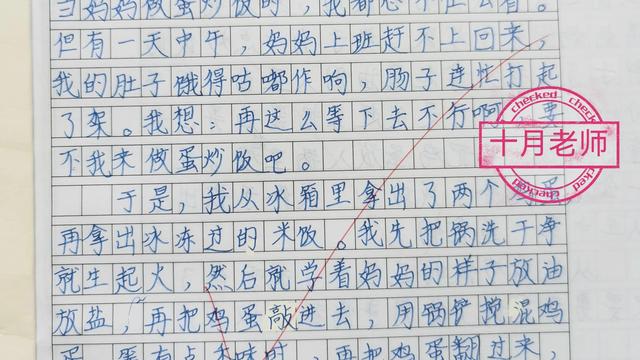 当妈妈做蛋炒饭时，我都忍不住去看。
但有一天中午，妈妈上班赶不上回来，
我的肚子饿得咕嘟作响，肠子连忙打起
了架。我想：再这么等下去不行啊，要
不我来做蛋炒饭吧。
于是，我从冰箱里拿出了两个
再拿出冰冻过的米饭。我先把锅洗干净
就生起火，然后就学着妈妈的样子放油
放盐，再把鸡蛋敲进去，用锅铲搅混鸡
蛋，蛋有点香味时，再把鸡蛋翻过来，
checked
十月老师
checked